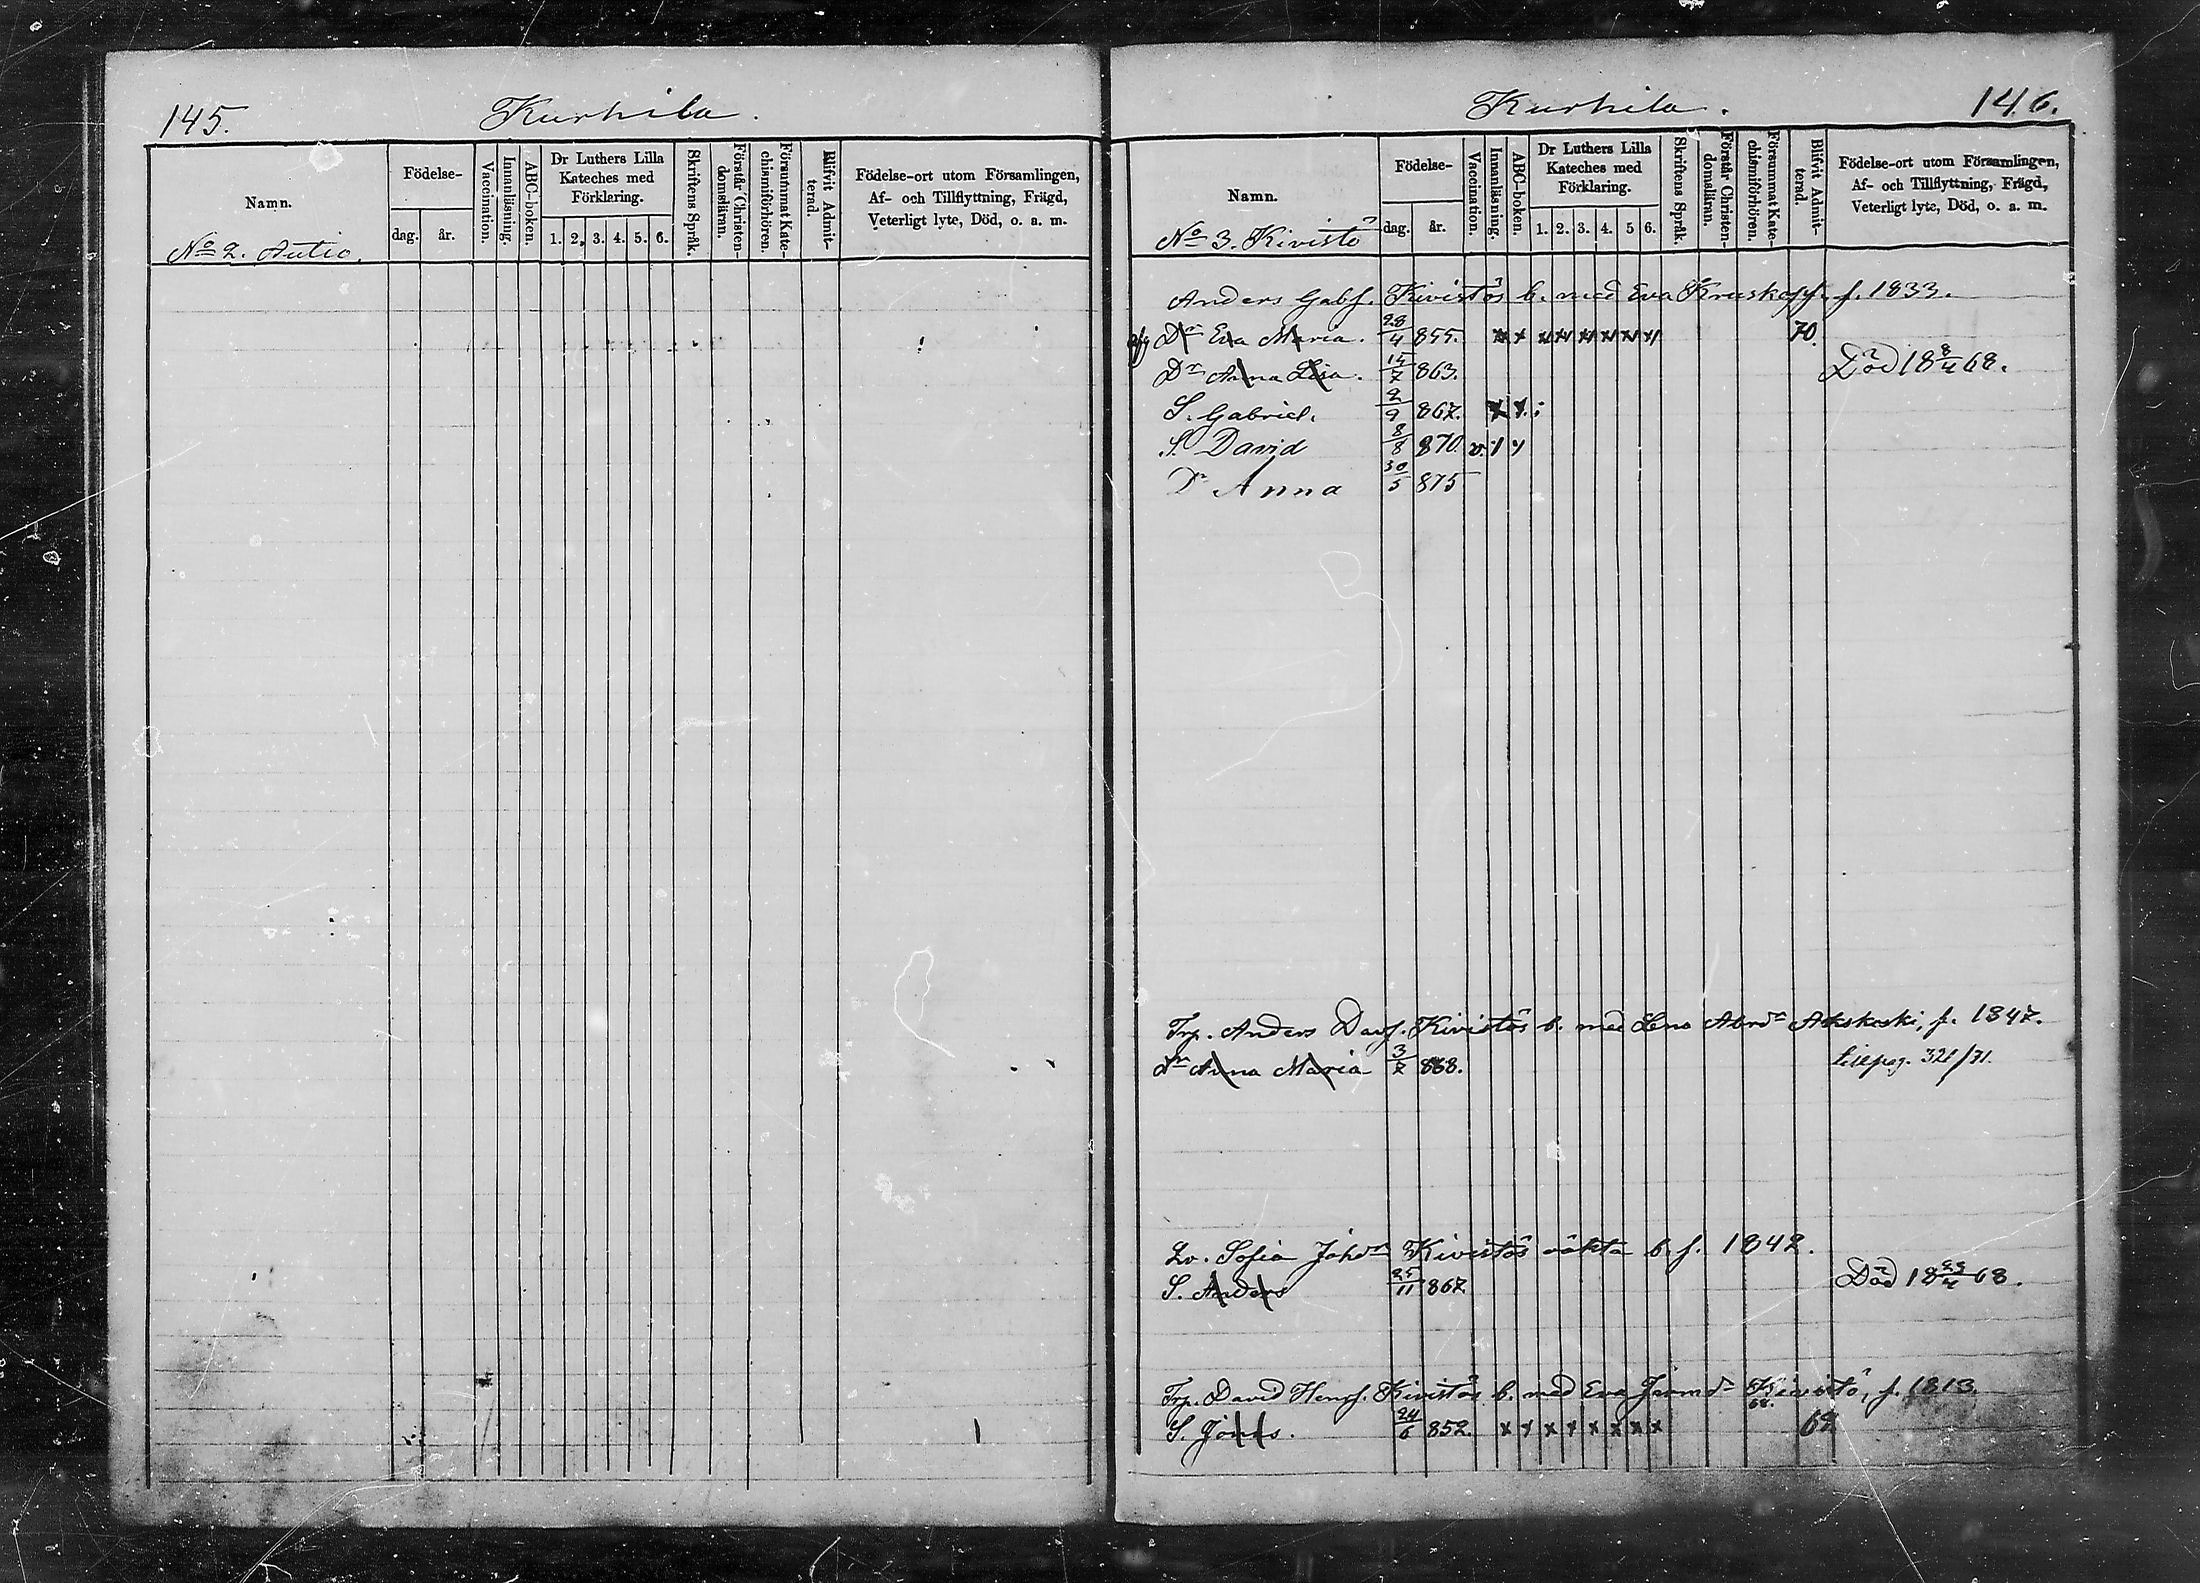 145.
Kurhila.
Namn.
Födelse-
dag. år.
Vaccination.
Innanläsning.
ABC-boken.
Dr Luthers Lilla
Kateches med
Förklaring.
1. 2. 3. 4. 5. 6.
Skriftens Språk.
Förstår Christen-
domsläran.
Försummat Kate-
chismiförhören.
Blifvit Admit-
terad.
Födelse-ort utom Församlingen,
Af- och Tillflyttning, Frägd,
Veterligt lyte, Död, o. a. m.
No 2. Autio.
Kurhila.
146.
Namn.
Födelse-
dag. år.
Vaccination.
Innanläsning.
ABC-boken.
Dr Luthers Lilla
Kateches med
Förklaring.
1. 2. 3. 4. 5 6.
Skriftens Språk.
Förstår Christen-
domsläran.
Försummat Kate-
chismiförhören.
Blifvit Admit-
terad.
Födelse-ort utom Församlingen,
Af- och Tillflyttning, Frägd,
Veterligt lyte, Död, o. a. m.
No 3. Kivistö
Anders Gabs. Kivistös b. med Eva Kruskopf. f. 1833.
Dr Eva Maria. 28/4 855. x x x x x x x x 70.
Dr Anna Lisa. 15/7 863. Död 18 8/4 68.
S. Gabriel. 2/9 867. x x
S. David 8/8 870. v.
Dr Anna 30/5 875
Trp. Anders Davs. Kivistös b. med Lena Abrdr f. 1847.
dr Anna Maria 3/7 868. till pag. 321/71.
Sofia Johdr Kivistös b. f. 1842.
S. Anders 25/11 867. Död 18 29/4 68.
Trp. David Henrs. Kivistös b. med Eva Kivistö, f. 1813.
68.
S. Jonas. 24/6 852. x x x x x x x x 68